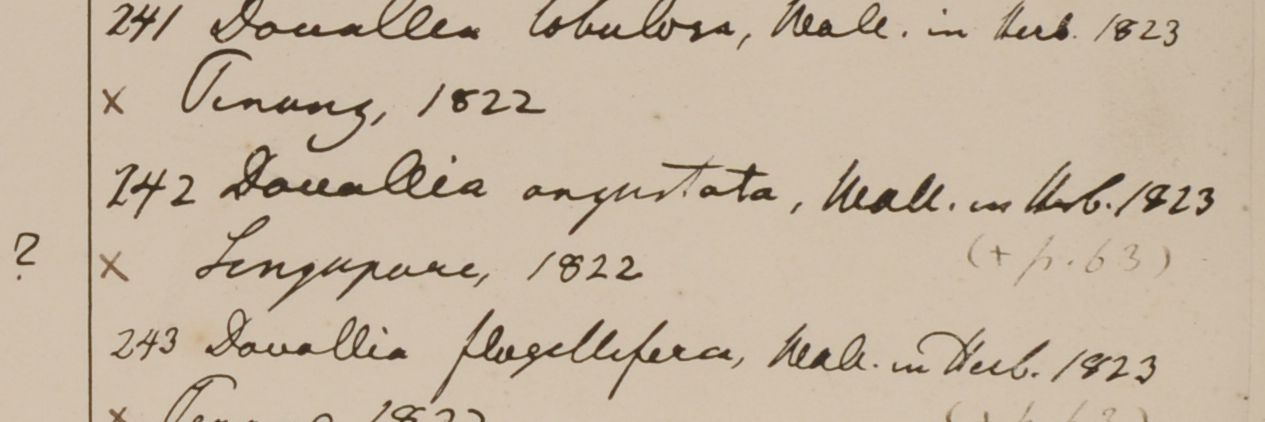 241 Davallia lobulosa, Wall. in Herb. 1823
× Penang, 1822
242 Davallia angustata, Wall. in Herb. 1823
? × Singapore, 1822 (+ p. 63)
243 Davallia flagellifera, Wall. in Herb. 1823
× 1822 (+ p. 63)